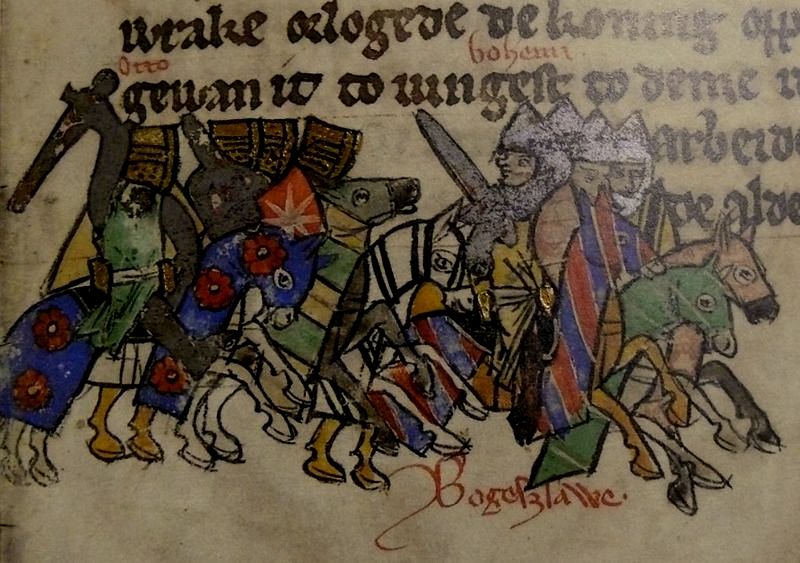 wrake orlogede de koning opp
Otto bohemi
gewan it to uingest to deme r
arbeide
de alde
Bogeslawe.